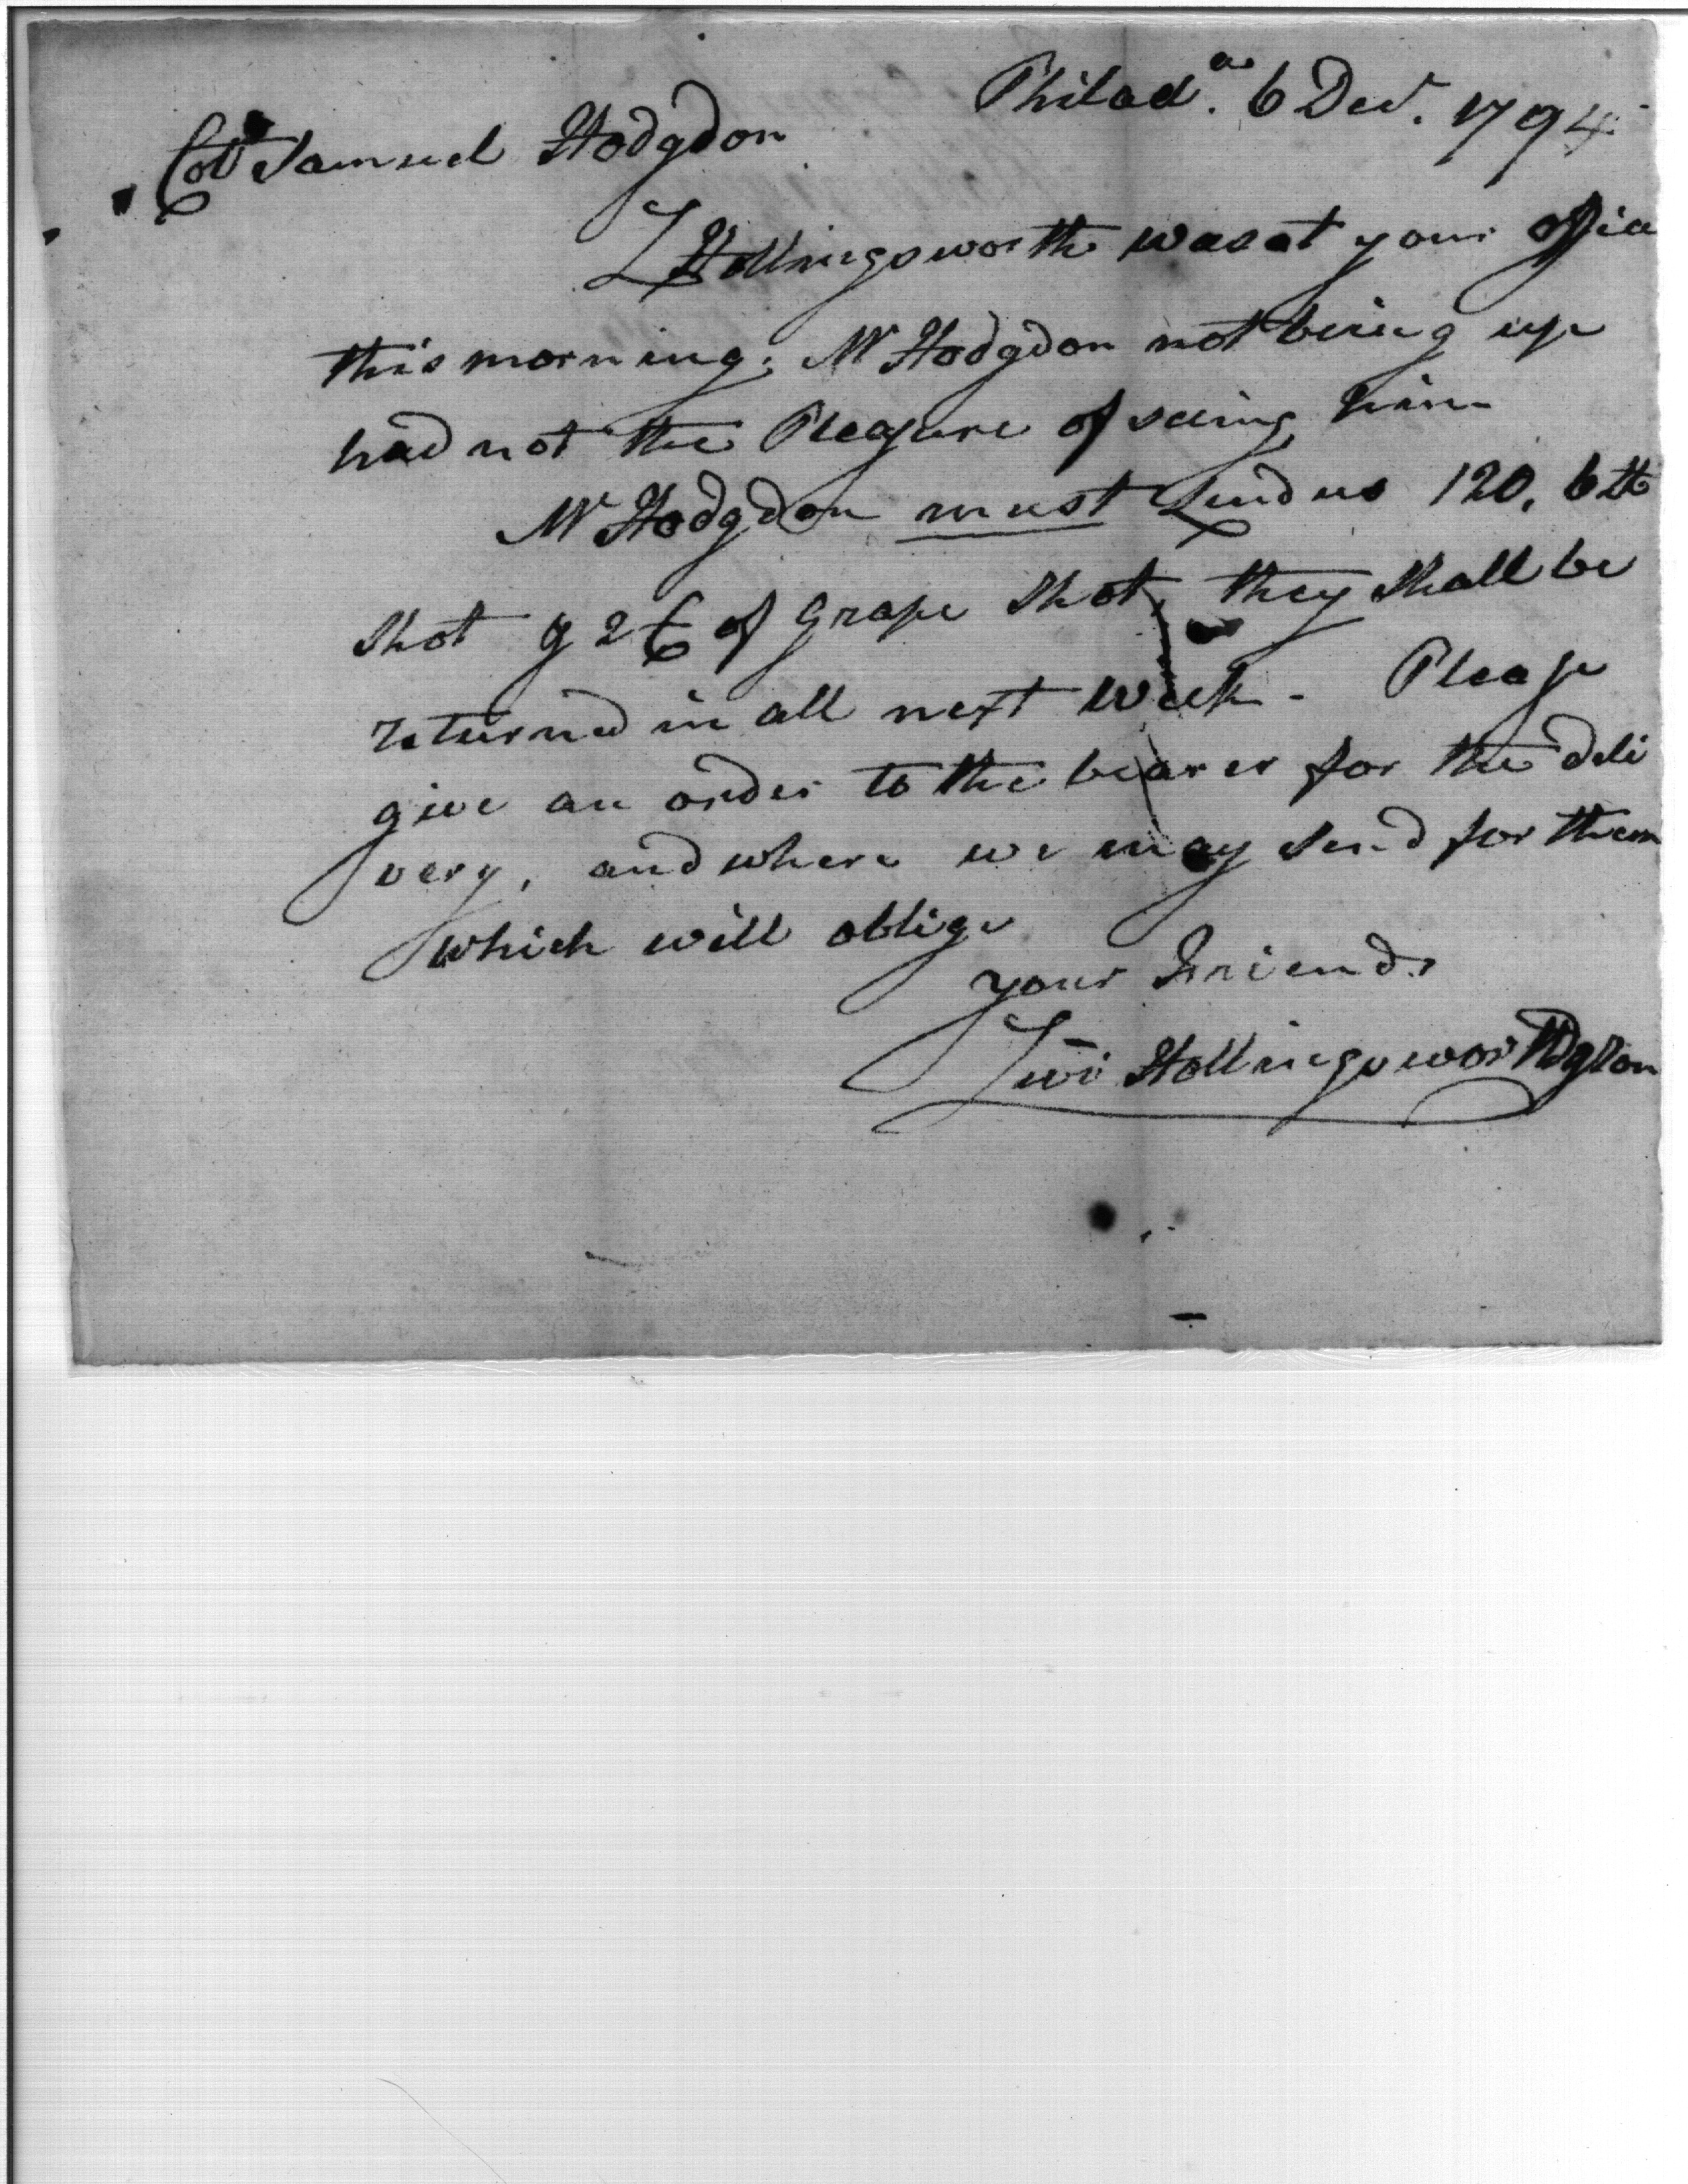 Philad.a 6 Decr. 1794
Coll Samuel Hodgdon
L Hollingsworth was at your office
this morning; Mr Hodgdon not being up
had not the Pleasure of seeing him
Mr Hodgdon must Lend us 120, 6 lb
shot & 2 C of Grape shot, they shall be
returned in all next week - Please
give an order to the bearer for the deli
very, and where we may send for them
which will oblige
your Friends
Levi Hollingsworth &